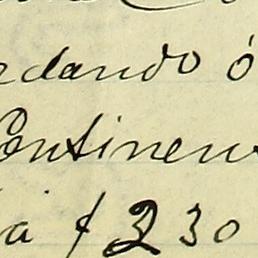 edando ó
Continen
a $ 230